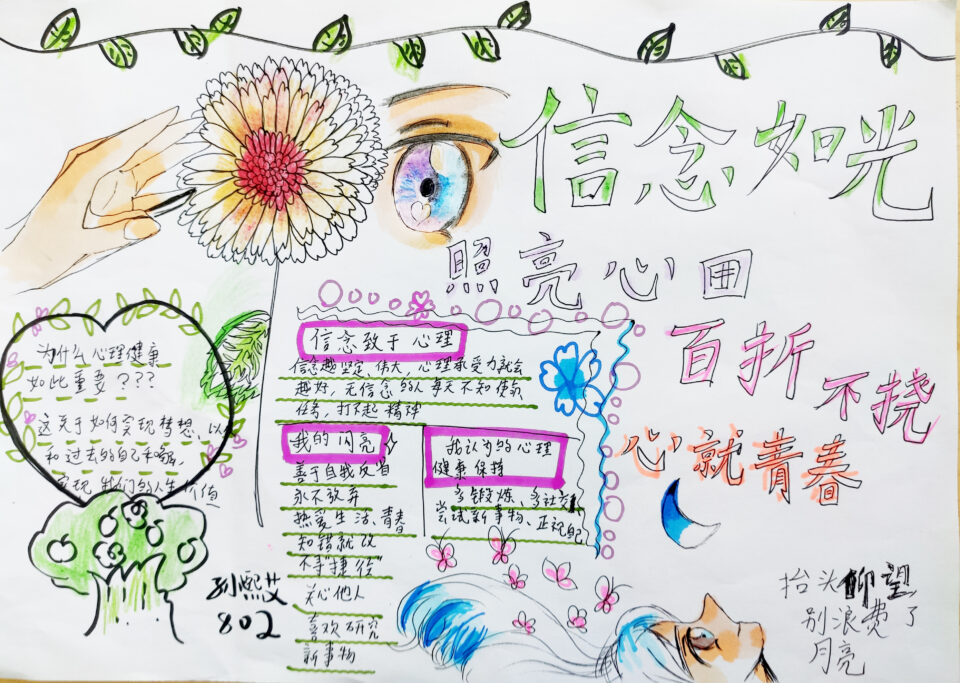 信念如光
照亮心田
百折
不挠
心就青春
为什么心理健康
如此重要？？？
这关于如何实现梦想、以
和过去的自己和解，
实现我们的人生价值
信念致于心理
信念越坚定、伟大，心理承受力就会
越好，无信念的人每天不知使命
任务，打不起精神
我的闪亮
善于自我反省
永不放弃
热爱生活、青春
知错就改
不寻“捷径”
关心他人
喜欢研究
新事物
我认为的心理
健康保持
多锻炼、多社交
尝试新事物、正视自己
孙熙艾
802
抬头仰望
别浪费了
月亮